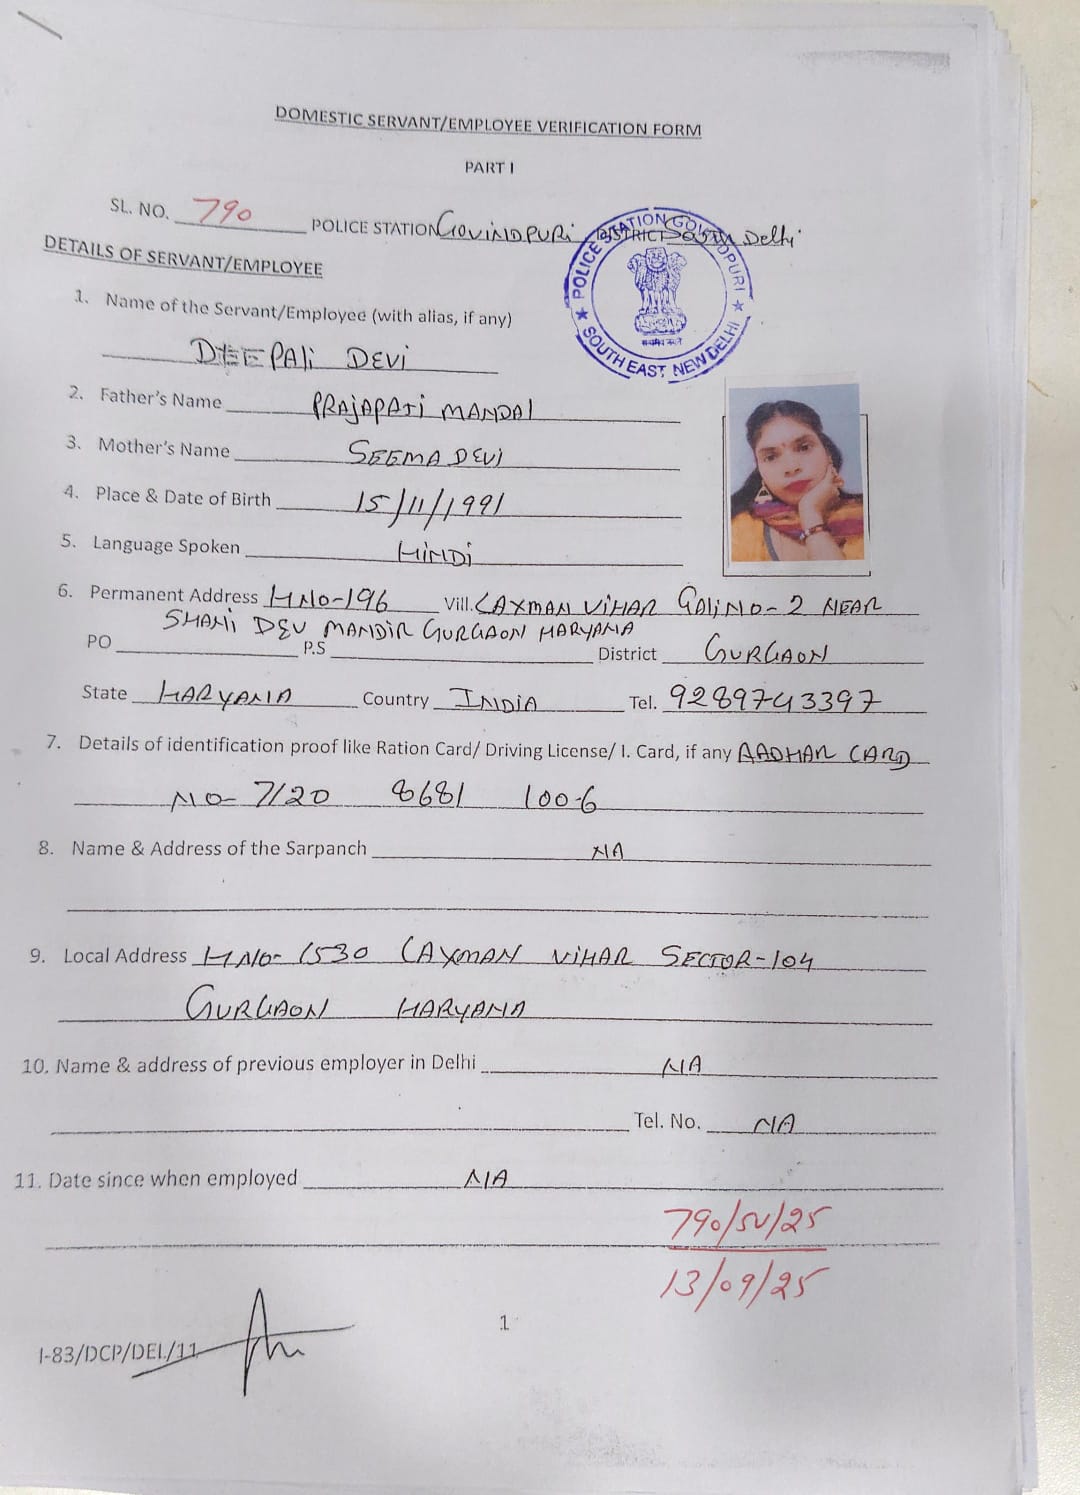 DOMESTIC SERVANT/EMPLOYEE VERIFICATION FORM
PART I
SL. NO. 790 POLICE STATION GOVINDPURI DISTRICT South Delhi
POLICE STATION GOVINDPURI
SOUTH EAST, NEW DELHI
सत्यमेव जयते
DETAILS OF SERVANT/EMPLOYEE
1. Name of the Servant/Employee (with alias, if any)
DEEPALI DEVI
2. Father's Name PRAJAPATI MANDAL
3. Mother's Name SEEMA DEVI
4. Place & Date of Birth 15/11/1991
5. Language Spoken HINDI
6. Permanent Address H NO-196 Vill. LAXMAN VIHAR GALI NO-2 NEAR
SHANI DEV MANDIR GURGAON HARYANA
PO P.S District GURGAON
State HARYANA Country INDIA Tel. 9289743397
7. Details of identification proof like Ration Card/ Driving License/ I. Card, if any AADHAR CARD
NO- 7120 8681 1006
8. Name & Address of the Sarpanch NA
9. Local Address H NO- 1530 LAXMAN VIHAR SECTOR-104
GURGAON HARYANA
10. Name & address of previous employer in Delhi NA
Tel. No. NA
11. Date since when employed NA
790/SV/25
13/09/25
1
I-83/DCP/DEL/11